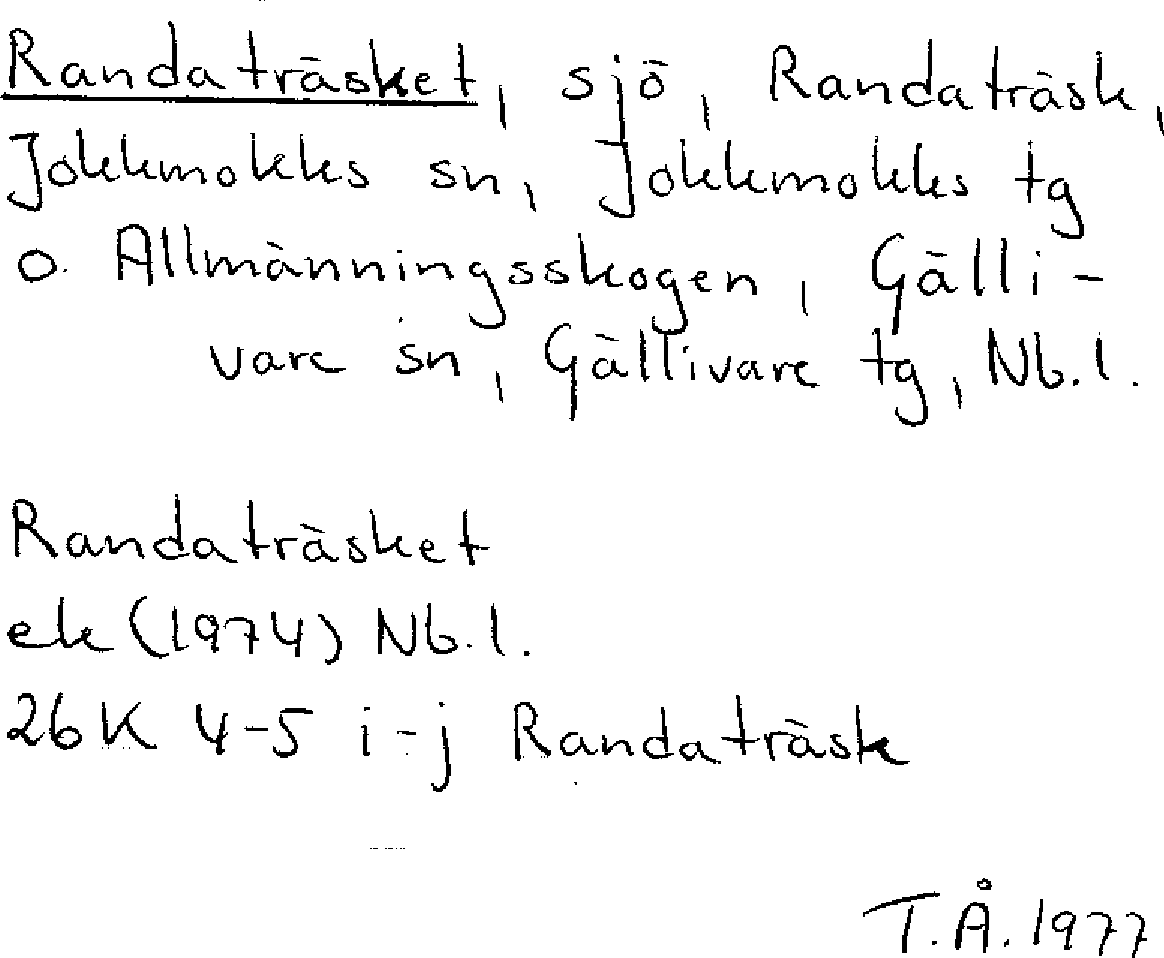 Randaträsket, sjö, Randaträsk,
Jokkmokks sn, Jokkmokks tg
o. Allmänningsskogen, Gälli-
vare sn, Gällivare tg, Nb.l.
Randaträsket
ek (1974) Nb.l.
26K 4-5 i-j Randaträsk
T.Å. 1977